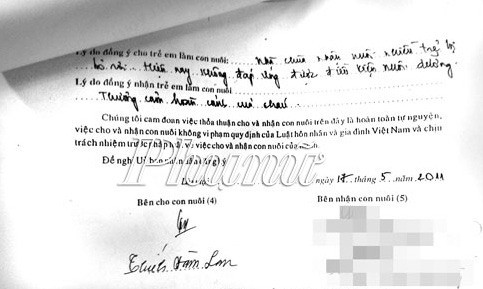 Lý do đồng ý cho trẻ em làm con nuôi: Nhà chùa nhận nuôi nhiều trẻ bị
bỏ rơi. Hiện nay không đáp ứng được điều kiện nuôi dưỡng.
Lý do đồng ý nhận trẻ em làm con nuôi:
Thương cảm hoàn cảnh của cháu
Chúng tôi cam đoan việc thỏa thuận cho và nhận con nuôi trên đây là hoàn toàn tự nguyện,
việc cho và nhận con nuôi không vi phạm quy định của Luật hôn nhân và gia đình Việt Nam và chịu
trách nhiệm trước pháp luật về việc cho và nhận con nuôi của
Đề nghị Uỷ ban nhân dân đăng ký
Phunu
ngày 17 tháng 5 năm 2011
Bên cho con nuôi (4) Bên nhận con nuôi (5)
Thích Đàm Lan